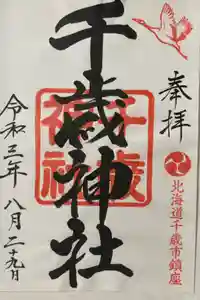 奉拝
北海道千歳市鎮座
千歳神社
千歳神社
令和三年八月二十九日